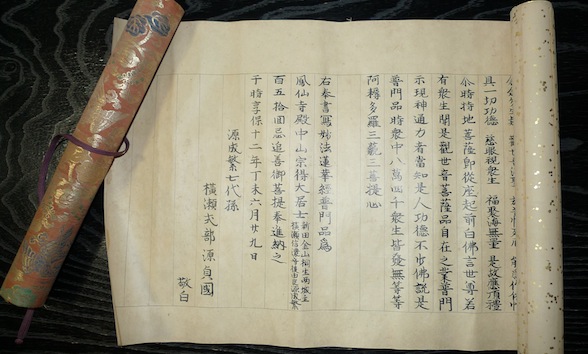 具一切功德 慈眼視衆生 福聚海無量 是故應頂禮
尒時持地菩薩即從座起前白佛言世尊若
有衆生聞是觀世音菩薩品自在之業普門
示現神通力者當知是人功德不少佛說是
普門品時衆中八萬四千衆生皆發無等等
阿耨多羅三藐三菩提心
右奉書寫妙法蓮華經普門品為
鳳仙寺殿中山宗得大居士 新田金山桐生両城主
横瀬信濃守
源成繁
百五拾回忌追善御菩提奉進納之
于時享保十二年丁未六月廿九日
源成繁七代孫
横瀬式部源貞國
敬白